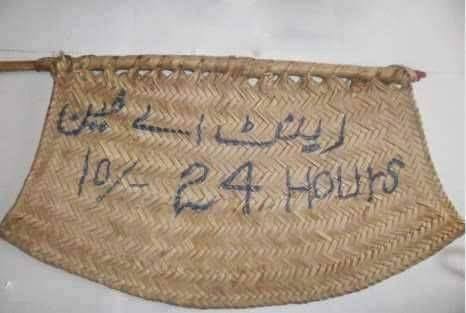 رینٹ اے فین
10/- 24 HOURS